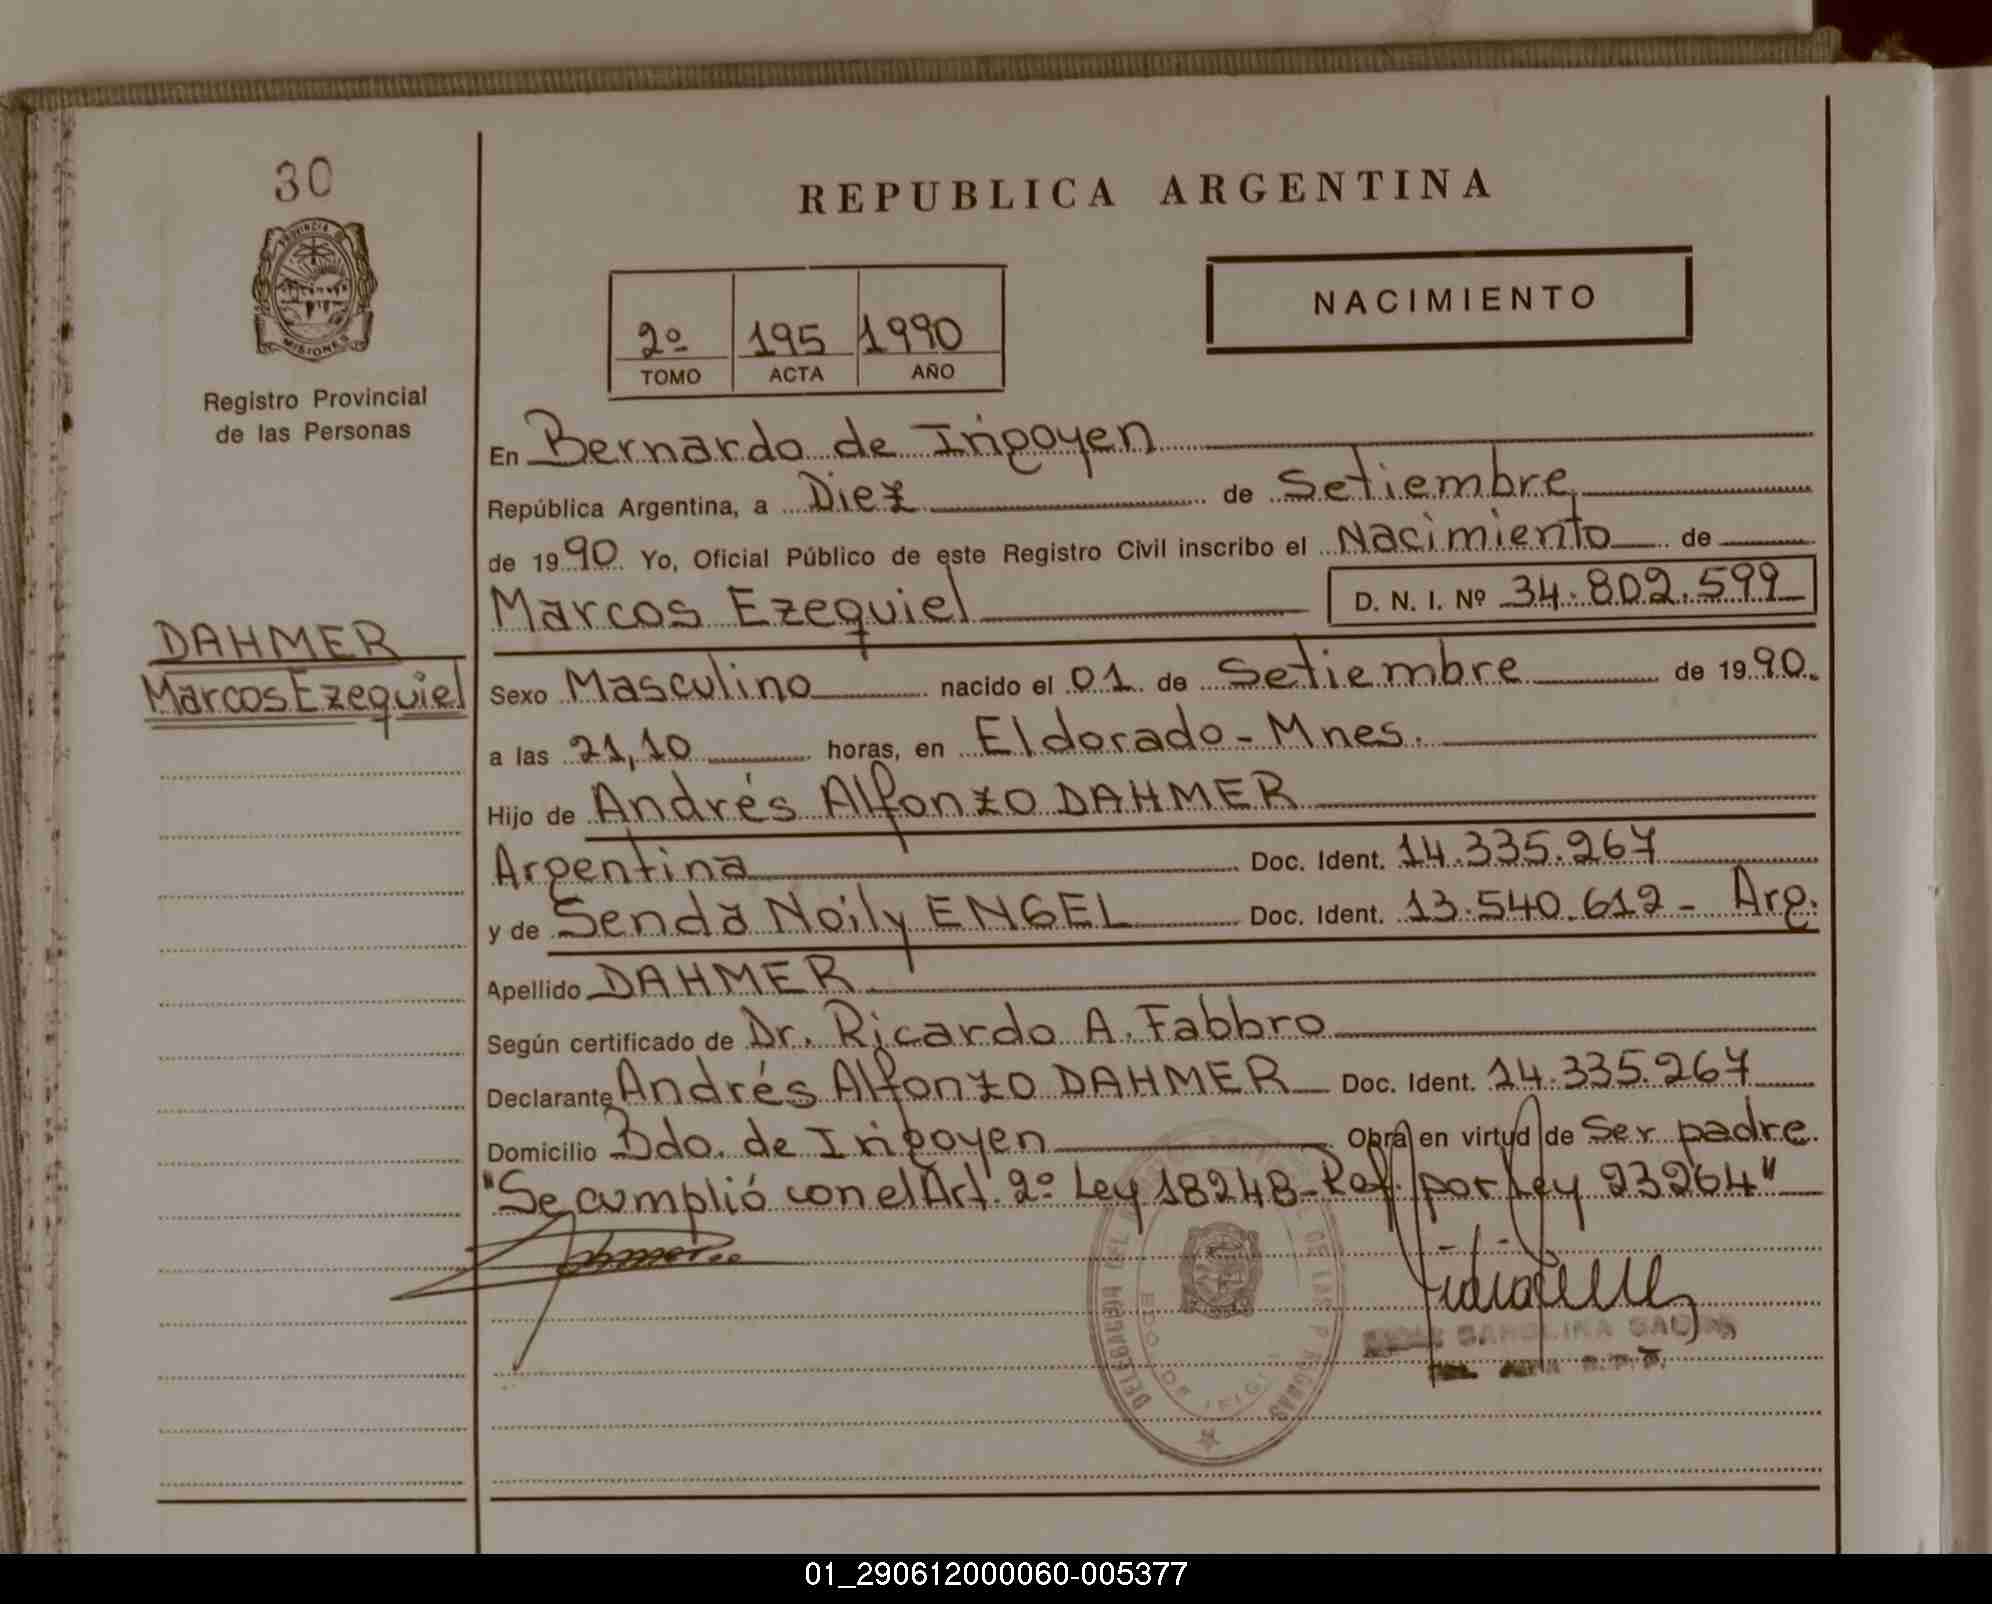 30
PROVINCIA DE
MISIONES
Registro Provincial
de las Personas
DAHMER
Marcos Ezequiel
REPUBLICA ARGENTINA
NACIMIENTO
2º 195 1990
TOMO ACTA AÑO
En Bernardo de Irigoyen
República Argentina, a Diez de Setiembre
de 1990 Yo, Oficial Público de este Registro Civil inscribo el Nacimiento de
Marcos Ezequiel D. N. I. Nº 34.802.599
Sexo Masculino nacido el 01 de Setiembre de 1990.
a las 21,10 horas, en Eldorado - Mnes.
Hijo de Andrés Alfonzo DAHMER
Argentina Doc. Ident. 14.335.267
y de Senda Noily ENGEL Doc. Ident. 13.540.612 - Arg.
Apellido DAHMER
Según certificado de Dr. Ricardo A. Fabbro
Declarante Andrés Alfonzo DAHMER Doc. Ident. 14.335.267
Domicilio Bdo. de Irigoyen Obra en virtud de Ser padre.
"Se cumplió con el Art. 2º Ley 18248 - Ref. por Ley 23264"
DELEGACION DEL
CAROLINA
01_290612000060-005377